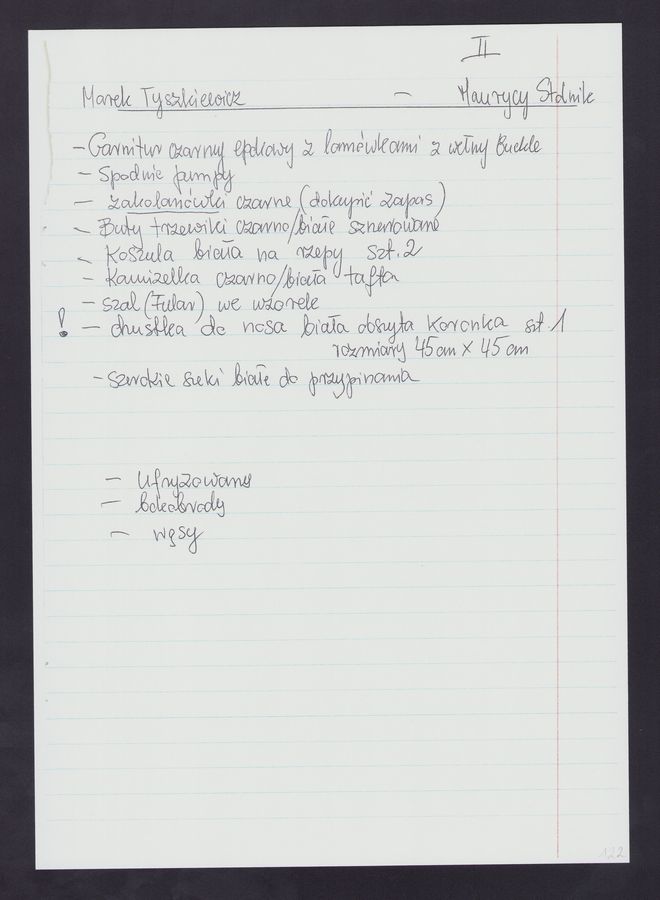 II
Marek Tyszkiewicz – Maurycy Stolnik
– Garnitur czarny epokowy z lamówkami z wełny Buckle
– Spodnie pumpy
– zakolanówki czarne (dokupić zapas)
– Buty trzewiki czarno/białe sznurowane
– Koszula biała na rzepy szt. 2
– Kamizelka czarno/biała tafta
– szal (Fular) we wzorek
! – chustka do nosa biała obszyta Koronka szt. 1
rozmiary 45 cm x 45 cm
– szerokie białe do przypinania
– Ufryzowany
– bokobrody
– wąsy
122